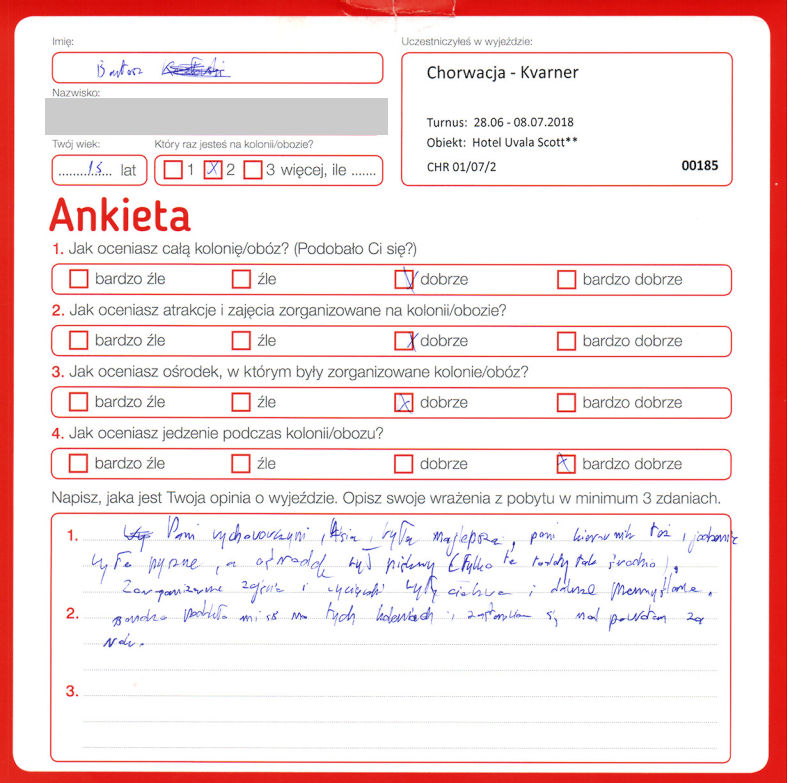 Imię:
Bartosz
Nazwisko:
Twój wiek:
15 lat
Który raz jesteś na kolonii/obozie?
1 X 2 3 więcej, ile .......
Uczestniczyłeś w wyjeździe:
Chorwacja - Kvarner
Turnus: 28.06 - 08.07.2018
Obiekt: Hotel Uvala Scott**
CHR 01/07/2 00185
Ankieta
1. Jak oceniasz całą kolonię/obóz? (Podobało Ci się?)
bardzo źle źle V dobrze bardzo dobrze
2. Jak oceniasz atrakcje i zajęcia zorganizowane na kolonii/obozie?
bardzo źle źle X dobrze bardzo dobrze
3. Jak oceniasz ośrodek, w którym były zorganizowane kolonie/obóz?
bardzo źle źle X dobrze bardzo dobrze
4. Jak oceniasz jedzenie podczas kolonii/obozu?
bardzo źle źle dobrze X bardzo dobrze
Napisz, jaka jest Twoja opinia o wyjeździe. Opisz swoje wrażenia z pobytu w minimum 3 zdaniach.
1. Pani wychowawczyni, Asia, była najlepsza, pani kierownik też i jedzenie
było pyszne, a ośrodek był piękny (tylko te
Zorganizowane zajęcia i wycieczki były ciekawe i dobrze przemyślane.
2. Bardzo podobało mi się na tych koloniach i zastanawiam się nad powrotem za
rok.
3.